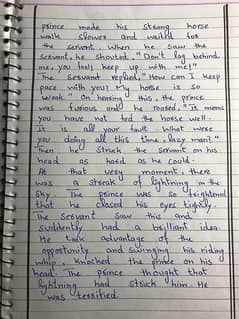 prince made his strong horse
walk slower and waited for
the servant. When he saw the
servant, he shouted, "Don't lag behind
me, you fool, keep up with me!"
The servant replied, "How can I keep
pace with you! My horse is so
weak." On hearing this, the prince
was furious and he roared, "It means
you have not fed the horse well.
It is all your fault. What were
you doing all this time, lazy man?"
Then he struck the servant on his
head as hard as he could.
At that very moment, there
was a streak of lightning in the
sky. The prince was so frightened
that he closed his eyes tightly.
The servant saw this and
suddently had a brilliant idea.
He took advantage of the
opportunity and swinging his riding
whip, knocked the prince on his
head. The prince thought that
lightning had struck him. He
was terrified.